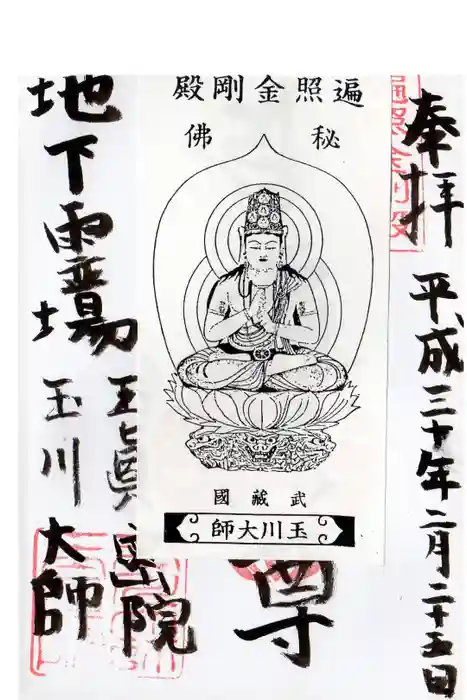 奉拝
平成三十年二月二十五日
遍照金剛殿
秘佛
武藏國
玉川大師
尊
地下靈場
玉眞密院
玉川大師